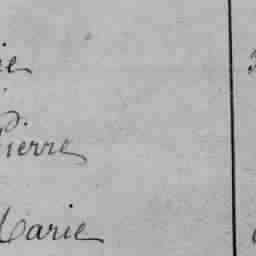 ie
Pierre
Marie